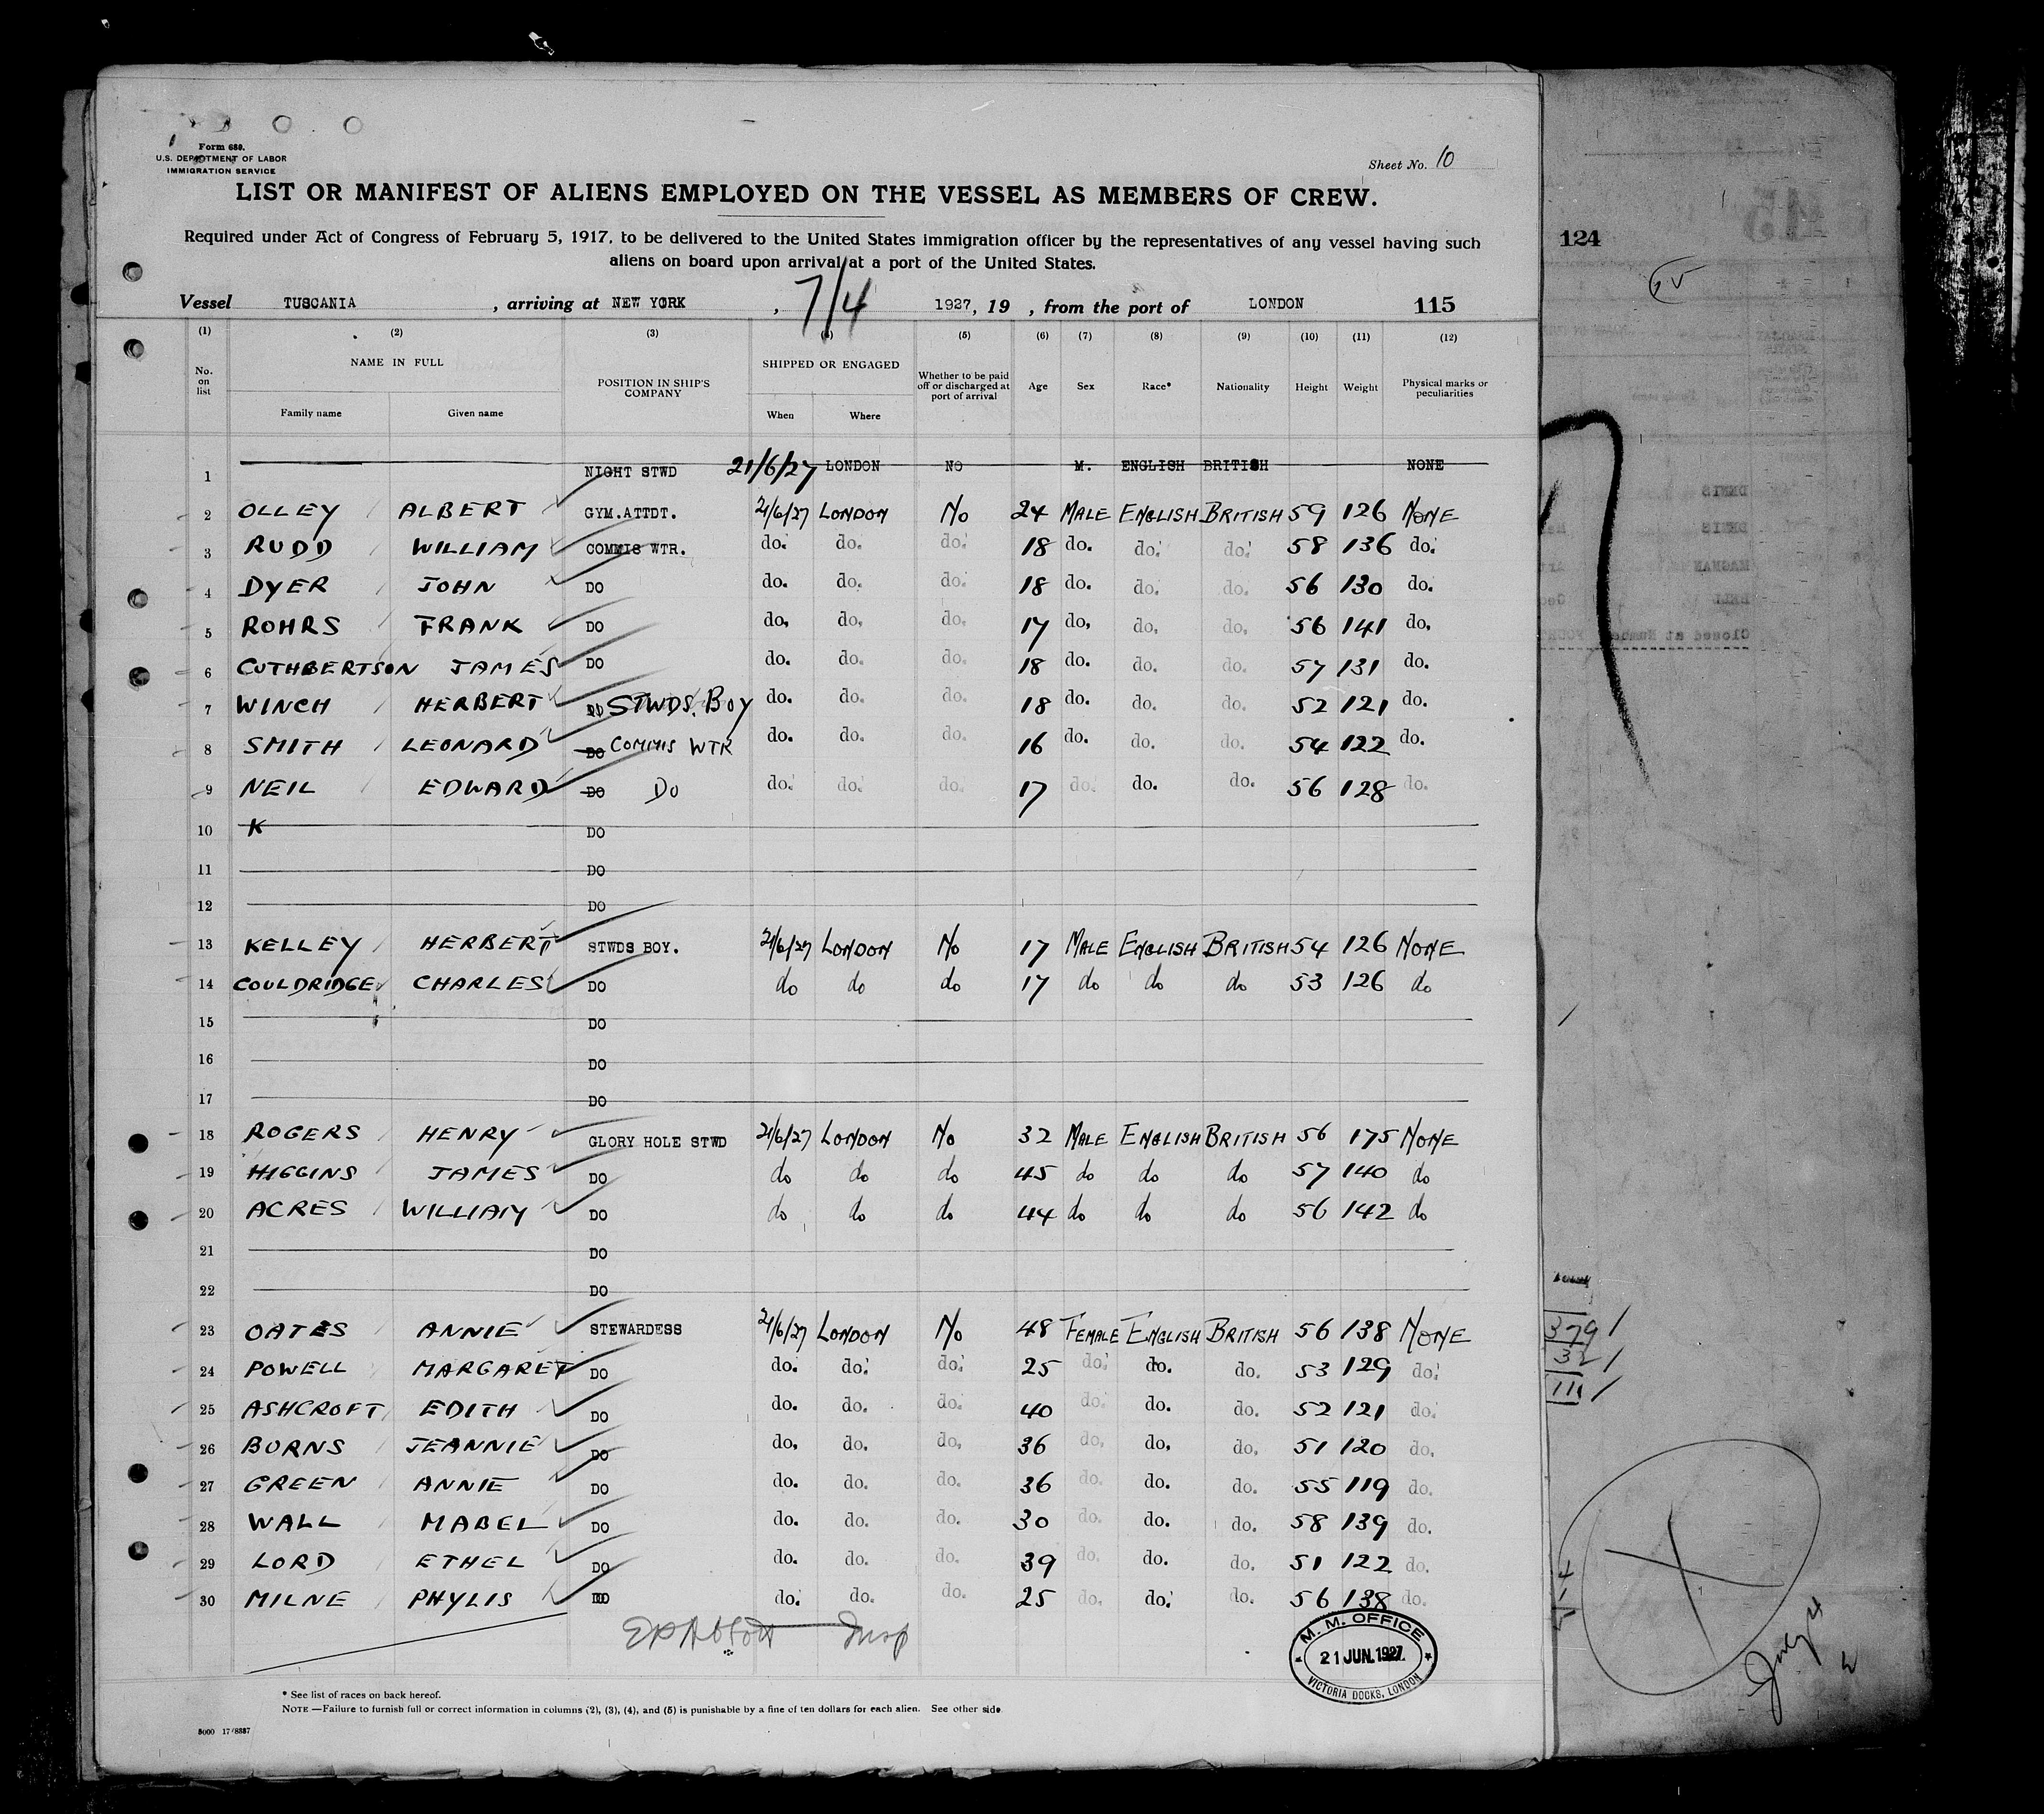 Form 680.
U.S. DEPARTMENT OF LABOR
IMMIGRATION SERVICE
Sheet No. 10
LIST OR MANIFEST OF ALIENS EMPLOYED ON THE VESSEL AS MEMBERS OF CREW.
Required under Act of Congress of February 5, 1917, to be delivered to the United States immigration officer by the representatives of any vessel having such
aliens on board upon arrival at a port of the United States.
124
Vessel TUSCANIA , arriving at NEW YORK , 7/4 1927, 19 , from the port of LONDON 115
(1) (2) (3) (4) (5) (6) (7) (8) (9) (10) (11) (12)
No. on list NAME IN FULL Family name Given name POSITION IN SHIP'S COMPANY SHIPPED OR ENGAGED When Where Whether to be paid off or discharged at port of arrival Age Sex Race* Nationality Height Weight Physical marks or peculiarities
1 NIGHT STWD 21/6/27 LONDON NO M. ENGLISH BRITISH NONE
2 OLLEY ALBERT GYM.ATTDT. 21/6/27 LONDON No 24 MALE ENGLISH BRITISH 59 126 NONE
3 RUDD WILLIAM COMMIS WTR. do. do. do. 18 do. do. do. 58 136 do.
4 DYER JOHN DO do. do. do. 18 do. do. do. 56 130 do.
5 ROHRS FRANK DO do. do. do. 17 do. do. do. 56 141 do.
6 CUTHBERTSON JAMES DO do. do. do. 18 do. do. do. 57 131 do.
7 WINCH HERBERT DO STWDS. BOY do. do. do. 18 do. do. do. 52 121 do.
8 SMITH LEONARD DO COMMIS WTR do. do. do. 16 do. do. do. 54 122 do.
9 NEIL EDWARD DO DO do. do. do. 17 do. do. do. 56 128 do.
10 K DO
11 DO
12 DO
13 KELLEY HERBERT STWDS BOY. 21/6/27 LONDON No 17 MALE ENGLISH BRITISH 54 126 NONE
14 COULDRIDGE CHARLES DO do do do 17 do do do 53 126 do
15 DO
16 DO
17 DO
18 ROGERS HENRY GLORY HOLE STWD 21/6/27 LONDON No 32 MALE ENGLISH BRITISH 56 175 NONE
19 HIGGINS JAMES DO do do do 45 do do do 57 140 do
20 ACRES WILLIAM DO do do do 44 do do do 56 142 do
21 DO
22 DO
23 OATES ANNIE STEWARDESS 21/6/27 LONDON No 48 FEMALE ENGLISH BRITISH 56 138 NONE
24 POWELL MARGARET DO do. do. do. 25 do. do. do. 53 129 do.
25 ASHCROFT EDITH DO do. do. do. 40 do. do. do. 52 121 do.
26 BURNS JEANNIE DO do. do. do. 36 do. do. do. 51 120 do.
27 GREEN ANNIE DO do. do. do. 36 do. do. do. 55 119 do.
28 WALL MABEL DO do. do. do. 30 do. do. do. 58 139 do.
29 LORD ETHEL DO do. do. do. 39 do. do. do. 51 122 do.
30 MILNE PHYLIS DO do. do. do. 25 do. do. do. 56 138 do.
Insp
M. M. OFFICE
21 JUN. 1927
VICTORIA DOCKS, LONDON
379
32
111
July 4
* See list of races on back hereof.
NOTE —Failure to furnish full or correct information in columns (2), (3), (4), and (5) is punishable by a fine of ten dollars for each alien. See other side
5000 17/8887